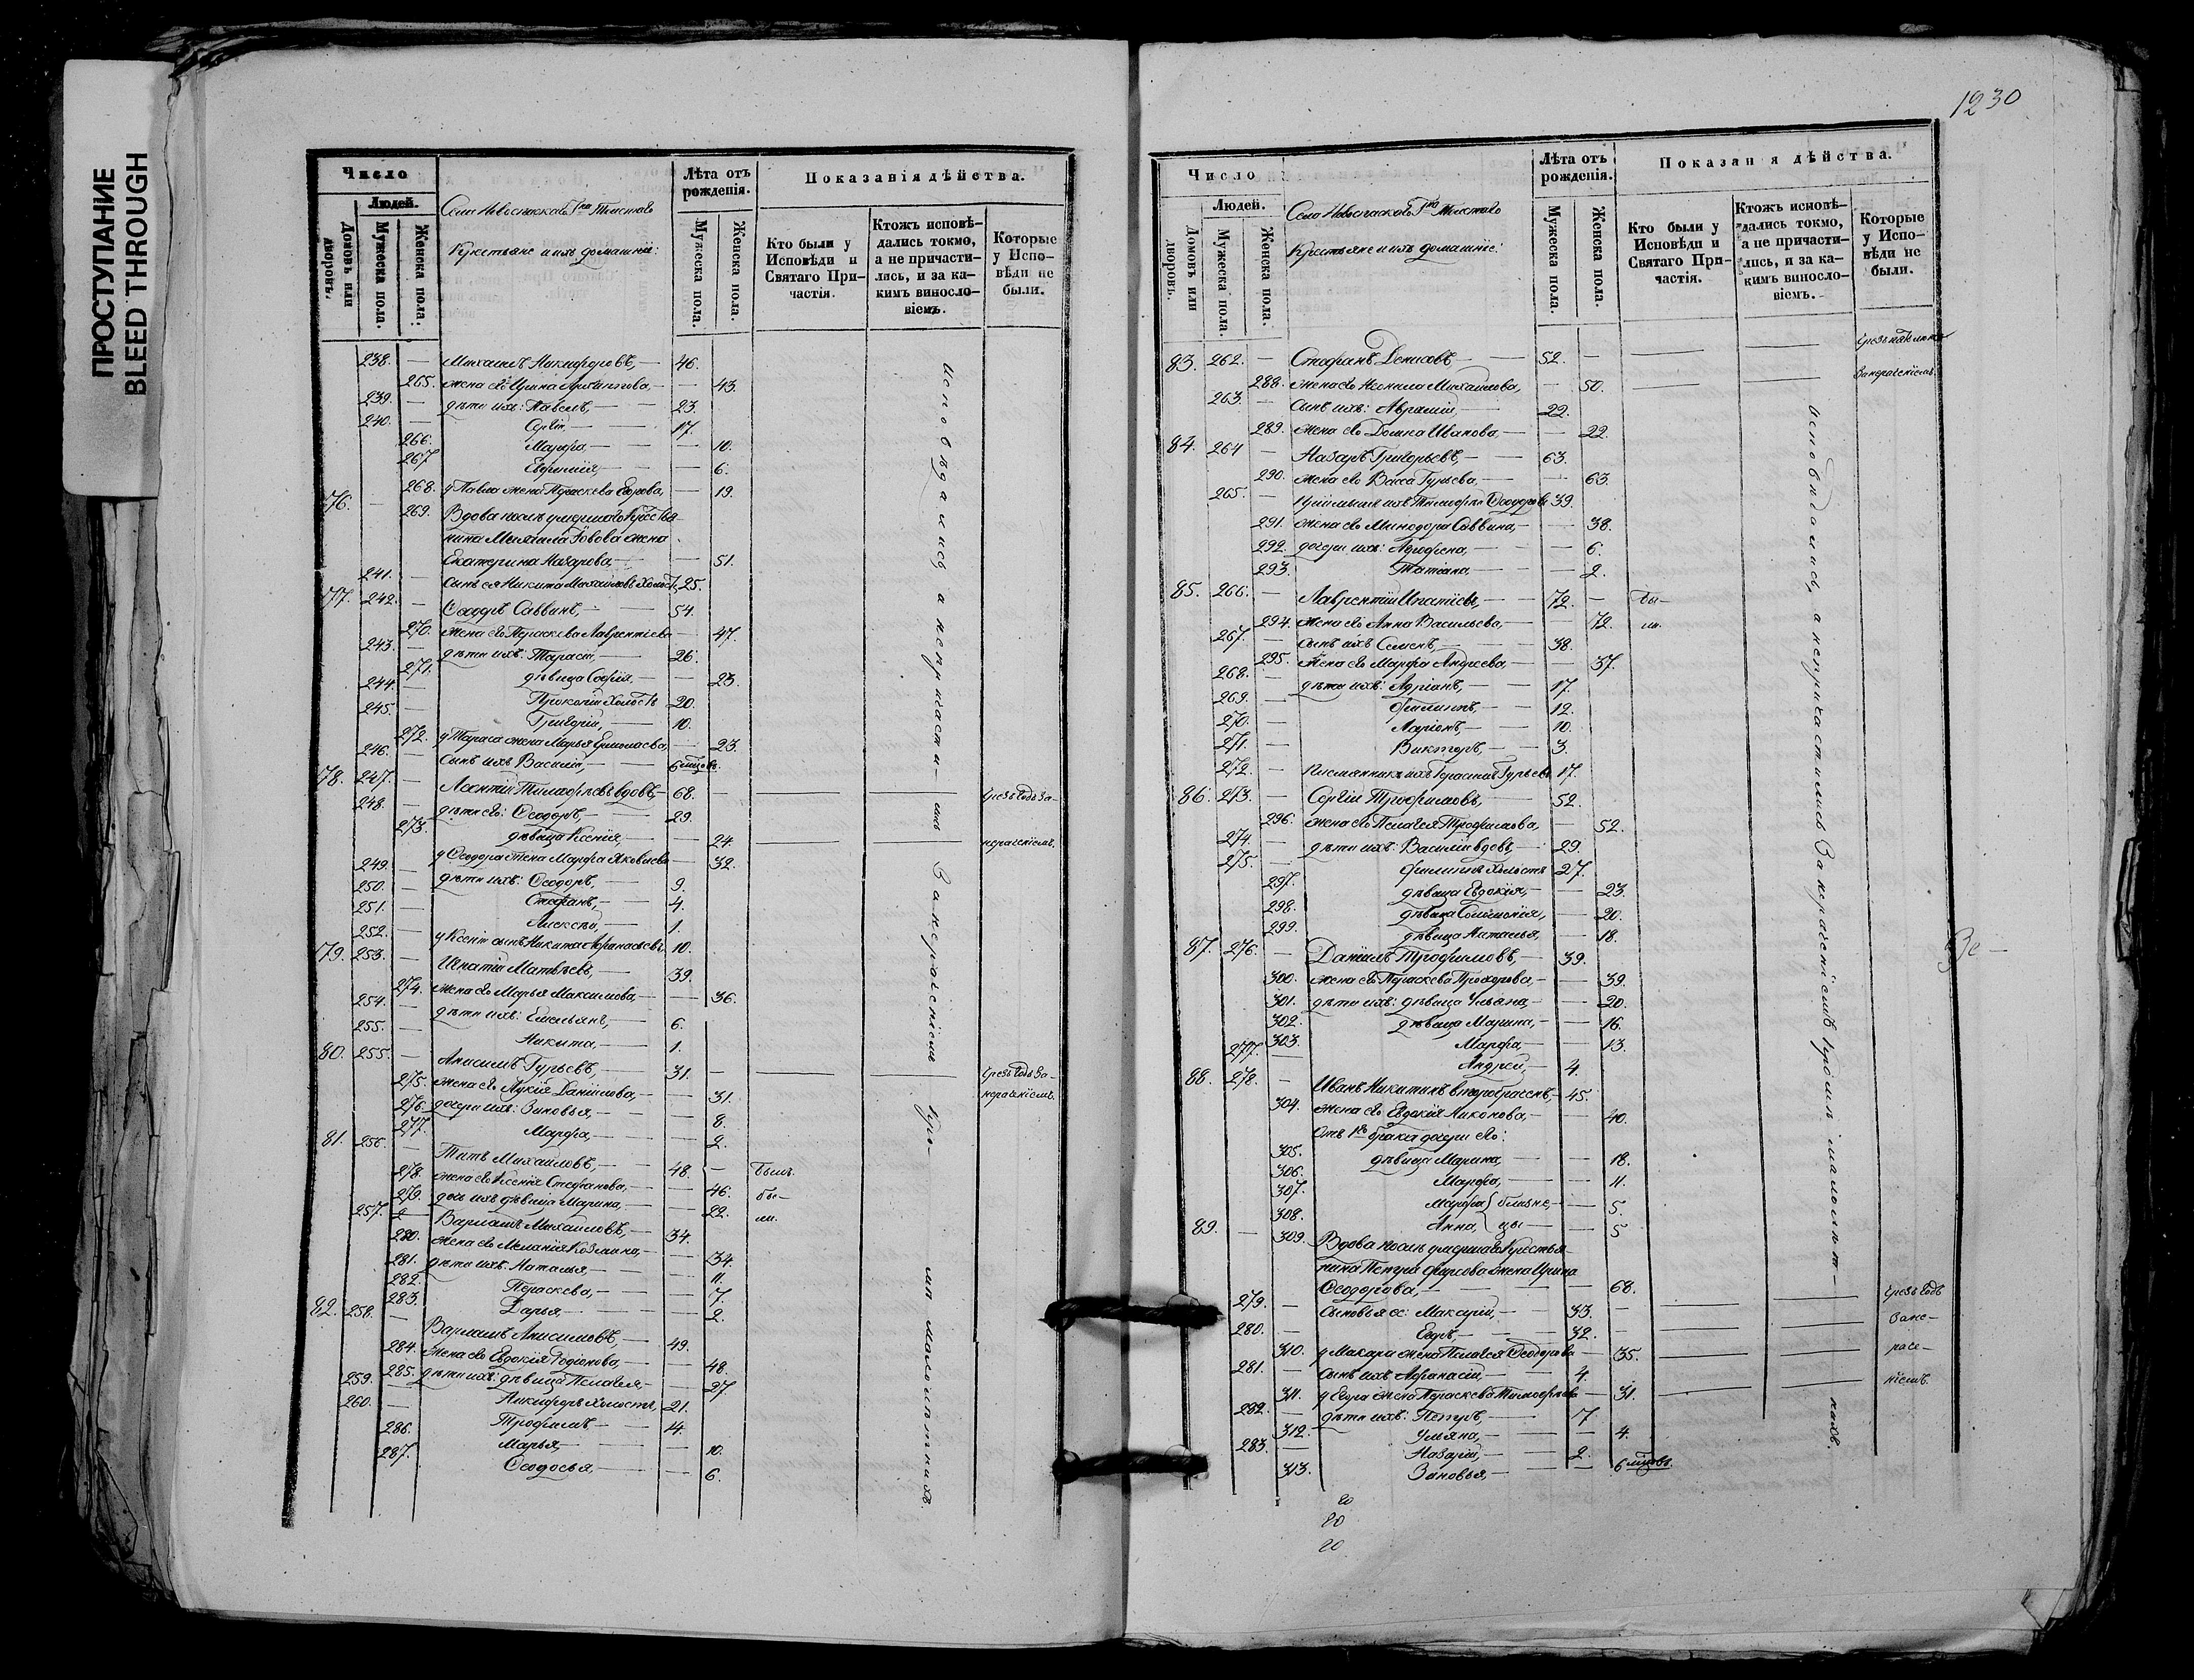 ПРОСТУПАНИЕ
BLEED THROUGH
Число
Людей.
Домовъ или дворовъ.
Мужеска пола.
Женска пола.
Село Новоспаскаго Г на Толстаго
Крестьяне и ихъ домашніе:
Лѣта отъ рожденія.
Мужеска пола.
Женска пола.
Показанія дѣйства.
Кто были у Исповѣди и Святаго Причастія.
Ктожъ исповѣдались токмо, а не причастились, и за какимъ винословіемъ.
Которые у Исповѣди не были.
238. — Михаилъ Никифоровъ, — 46.
265. жена его Ирина — 43.
239. — дѣти ихъ: Павелъ, — 23.
240. — Сергій, — 17.
266. Марфа, — 10.
267. Евфимія, — 6.
268. у Павла жена Параскева Егорова, — 19.
76. — 269. Вдова послѣ умершаго крестья-
нина Михаила жена
Екатерина Назарова, — 51.
241. — Сынъ ея Никита Михайловъ холостъ, 25.
77. 242. — Ѳеодоръ Саввинъ, — 54.
270. жена его Параскева Лаврентіева — 47.
243. — дѣти ихъ: Тарасій, — 26.
271. дѣвица Софія, — 23.
244. — Прокопій холостъ 20.
245. — Григорій, — 10.
272. у Тараса жена Марья Ермолаева, — 23.
246. — Сынъ ихъ Василій, — 6 мѣсяцовъ.
78. 247. — Леонтій Тимофеевъ вдовъ, — 68. — чрезъ годъ за-
248. — дѣти его: Ѳеодоръ, — 29.
273. дѣвица Ксенія, — 24. — нераченіемъ.
у Ѳеодора жена Марфа Яковлева — 32.
249. — дѣти ихъ: Ѳеодоръ, — 9.
250. — Стефанъ, — 4.
251. — Алексѣй, — 1.
252. — у Ксеніи сынъ Никита Афанасьевъ 10.
79. 253. — Игнатій Матвѣевъ, — 39.
274. жена его Марья Максимова, — 36.
254. — дѣти ихъ: Емельянъ, — 6.
255. — Никита, — 1.
80. 255. — Анисимъ Гурьевъ, — 31. — чрезъ годъ за-
275. жена его Лукія Даніилова, — 31. нераченіемъ.
276. дочери ихъ: Зиновья, — 8.
277. Марфа, — 2.
81. 256. — Титъ Михаиловъ, — 48. — былъ.
278. жена его Ксенія Стефанова, — 46. бы-
279. дочь ихъ дѣвица Марина, — 22. ли.
257. Варлаамъ Михаиловъ, — 34.
280. жена его Меланія Козмина, — 34.
281. дѣти ихъ: Наталья, — 11.
282. Параскева, — 7.
283. Дарья, — 2.
82. 258. — Варлаамъ Анисимовъ, — 49.
284. жена его Евдокія Родіонова, — 48.
285. дѣти ихъ: дѣвица Пелагея, — 27
259. — Никифоръ холостъ, 21.
260. — Трофимъ — 14.
286. Марья, — 10.
287. Ѳеодосья, — 6.
исповѣдались, а непричасти-лись Занераченіемъ кро-мѣ малолѣтнихъ
1230
Число
Людей.
Домовъ или дворовъ.
Мужеска пола.
Женска пола.
Село Новоспаскаго Г на Толстаго
Крестьяне и ихъ домашніе:
Лѣта отъ рожденія.
Мужеска пола.
Женска пола.
Показанія дѣйства.
Кто были у Исповѣди и Святаго Причастія.
Ктожъ исповѣдались токмо, а не причастились, и за какимъ винословіемъ.
Которые у Исповѣди не были.
83. 262. — Стефанъ Денисовъ — 52. — чрезъ
288. жена его Неонила Михаилова, — 50. — Занераченіемъ
263. — Сынъ ихъ: Аврамій, — 22.
289. жена его Домна Иванова, — 22.
84. 264 — Назаръ Григорьевъ, — 63.
290. жена его Васса Гурьева, — 63.
265. — Тимофей Ѳеодоровъ 39.
291. жена его Минодора Саввина, — 38.
292. дочери ихъ: Агрофена, — 6.
293. Татіана, — 2.
85. 266. — Лаврентій Ипатіевъ, — 72. — бы-
294. жена его Анна Васильева, — 72. ли.
267. — Сынъ ихъ Семенъ, — 38.
295. жена его Марфа Андреева, — 37.
268. — дѣти ихъ: Адріанъ, — 17.
269. — Филиппъ, — 12.
270. — Ларіонъ, — 10.
271. — Викторъ, — 3.
272. — Племянникъ ихъ Герасимъ Гурьевъ 17.
86. 273. — Сергій Трофимовъ, — 52.
296. жена его Пелагея Трофимова, — 52.
274. — дѣти ихъ: Василій вдовъ, — 29.
275. — Филиппъ холостъ 27.
297. дѣвица Евдокія, — 23.
298. дѣвица Соломонія, — 20.
299. дѣвица Наталья, — 18.
87. 276. — Даніилъ Трофимовъ, — 39.
300. жена его Параскева Прохорова, — 39.
301. дѣти ихъ: дѣвица Ульяна, — 20.
302. дѣвица Марина, — 16.
303. Марфа, — 13.
277. Андрей, — 4.
88. 278. — Иванъ Никитинъ второбраченъ, — 45.
304. жена его Евдокія Никонова, — 40.
Отъ 1го брака дочери его:
305. дѣвица Марина, — 18.
306. Марфа, — 11.
307. Марфа близне- — 5.
308. Анна, цы — 5
89. — 309. Вдова послѣ умершаго крестья-
нина Петра Фирсова жена Ирина
Ѳеодорова, — 68.
279. — Сыновья ее: Макарій, — 33. — чрезъ годъ
280. — Егоръ, — 32. — Зане-
310. у Макара жена Пелагея Ѳеодорова — 35. — раче-
281. — Сынъ ихъ Афанасій, — 4.
311. у Егора жена Параскева Тимофеева — 31. — ніемъ.
282. — дѣти ихъ: Петръ, — 7
312. Ульяна, — 4.
283. — Назарій, — 2.
313. Зиновья, — 6 мѣсяцовъ.
20
20
20
исповѣдались, а непричастились Занераченіемъ кромѣ малолѣт-нихъ.